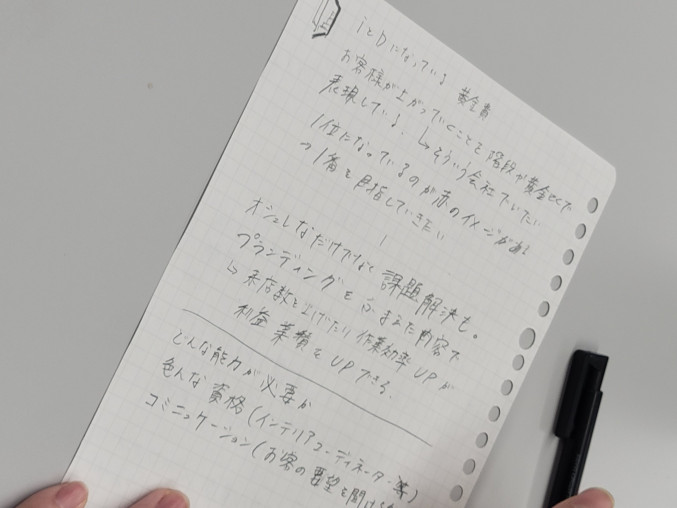 iとDになっている 黄金貴
お客様が上がっていくことを階段や黄金比で
表現している。↳そういう会社でいたい
1位になっているのが赤のイメージがある
→1番を目指していきたい
オシャレなだけでなく課題解決も。
ブランディングをふまえた内容で
↳来店数を上げたり作業効率UPが
利益 業績をUPできる。
どんな能力が必要か
色んな資格(インテリアコーディネーター等)
コミニュケーション(お客の要望を聞ける